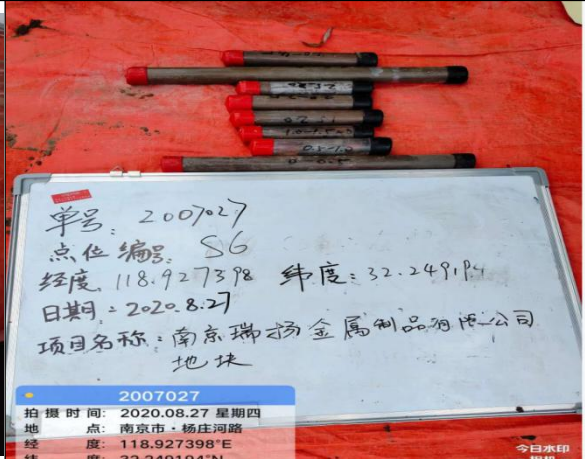 单号: 2007027
点位编号: S6
经度: 118.927398 纬度: 32.249194
日期: 2020.8.27
项目名称: 南京瑞扬金属制品有限公司
地块
2007027
拍摄时间: 2020.08.27 星期四
地点: 南京市·杨庄河路
经度: 118.927398°E
纬度: 32.249194°N
今日水印
相机